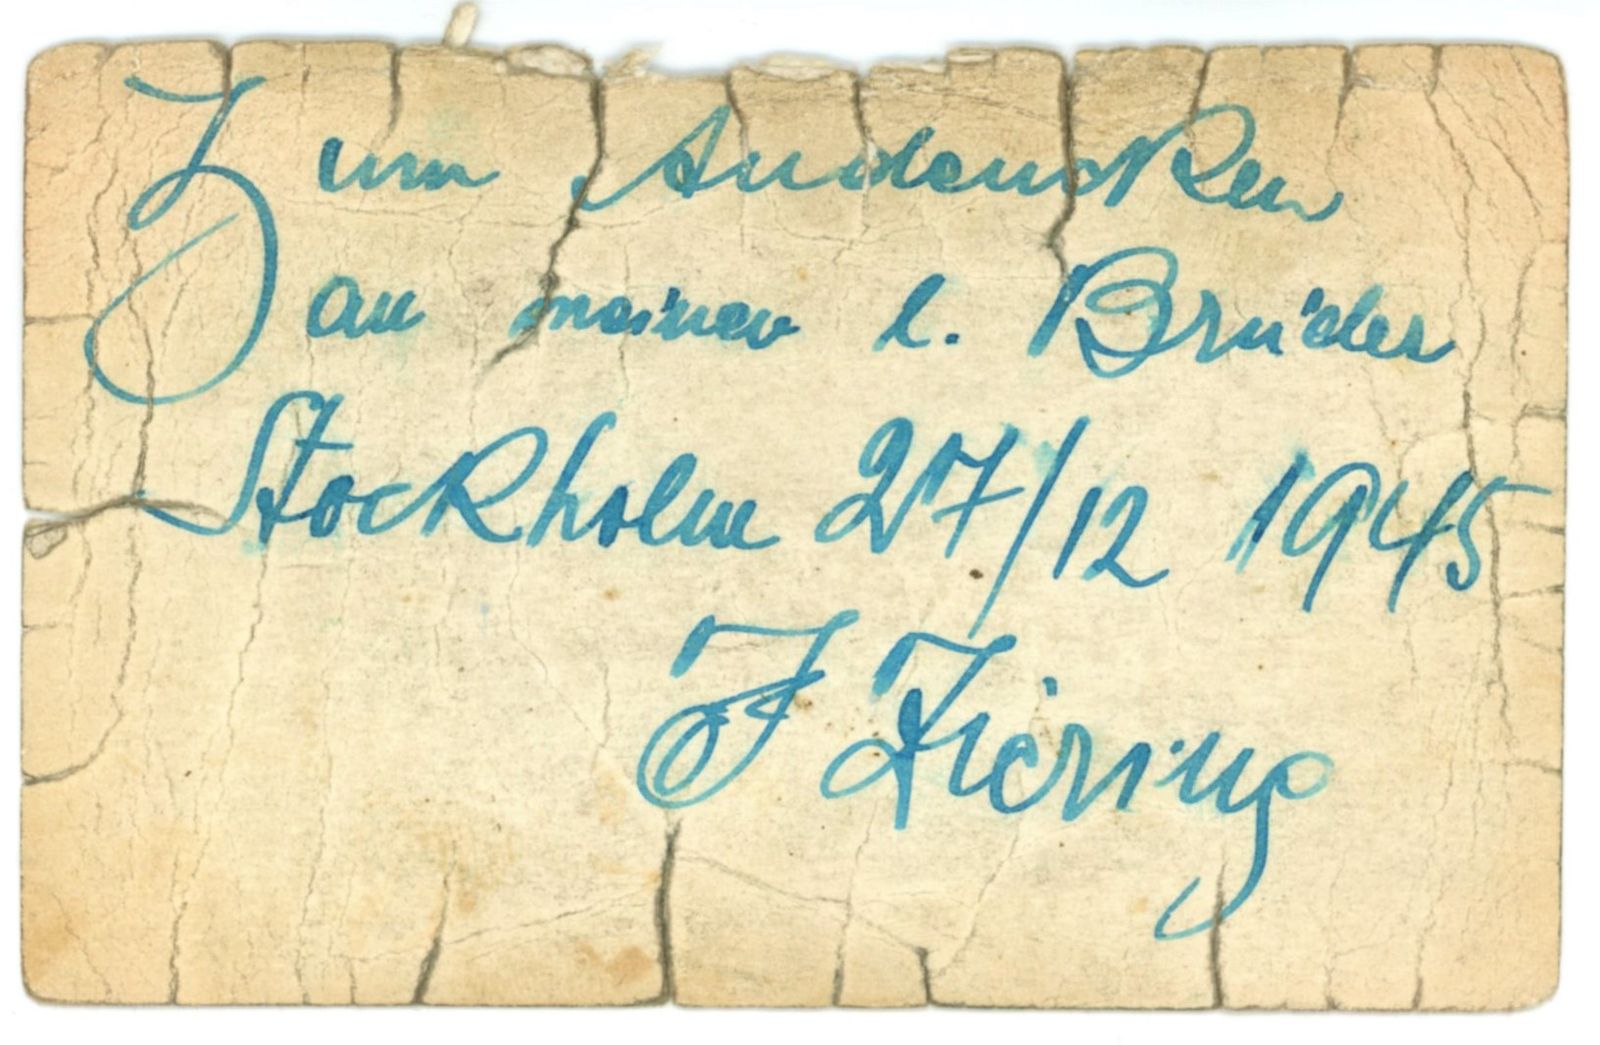 Zum Andencken
an meinen l. Brüder
Stockholm 27/12 1945
J Ziering